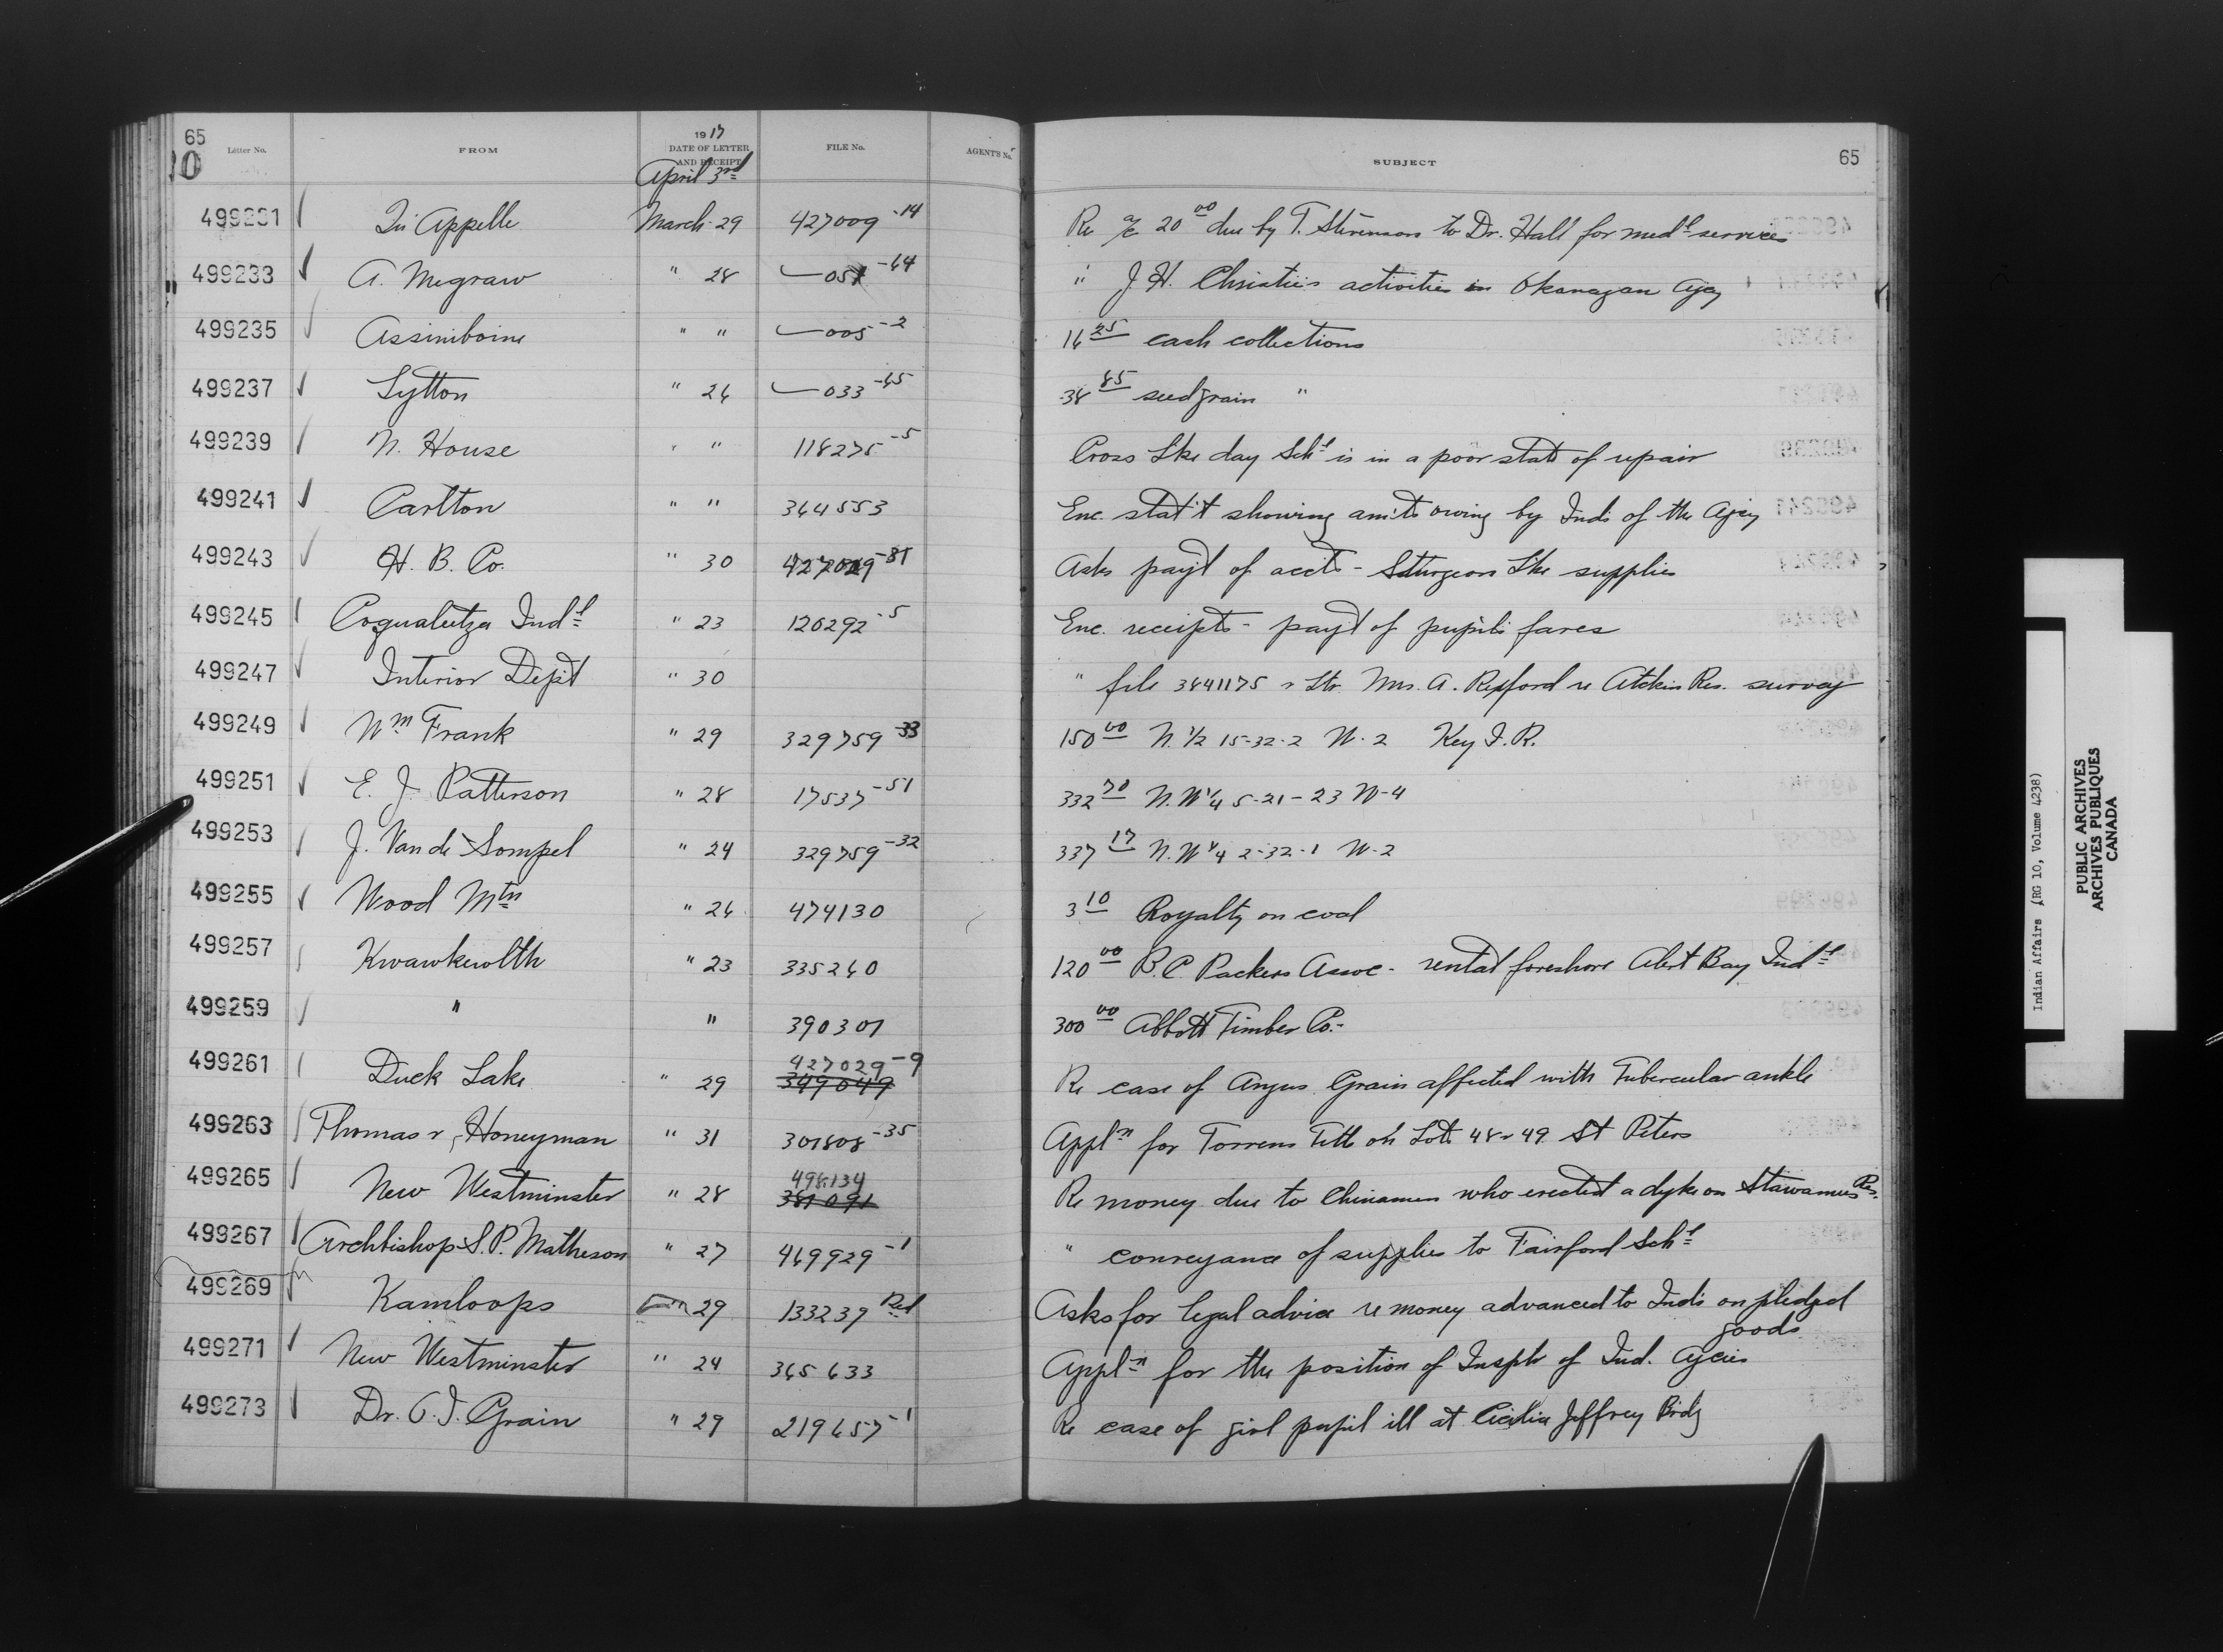 65 65
10 Letter No. FROM 1917 DATE OF LETTER AND RECEIPT FILE No. AGENT'S No. SUBJECT
April 3rd
499231 Qu Appelle March 29 427009-14 Re a/c 20 00 due by T. Stevenson to Dr. Hall for medl services
499233 A. Megraw " 28 051-64 " J. H. Christie's activities in Okanagan Agcy
499235 Assiniboine " " 005-2 16 25 cash collections
499237 Lytton " 26 033-65 38 85 seed grain "
499239 N. House " " 118275-5 Cross Lke day Schl is in a poor state of repair
499241 Carlton " " 364553 Enc. stat't showing am'ts owing by Inds of the Agcy
499243 H. B. Co. " 30 427029-81 Asks pay't of accts - Sturgeon Lke supplies
499245 Coqualeetza Indl " 23 120292-5 Enc. receipts - pay't of pupils fares
499247 Interior Dep't " 30 " file 3841175 & ltr. Mrs. A. Rexford re Atchin Res. survey
499249 Wm Frank " 29 329759-33 150 00 N. 1/2 15-32-2 W-2 Key I. R.
499251 E. J. Patterson " 28 17537-51 332 70 N.W 1/4 5-21-23 W-4
499253 J. Van de Sompel " 24 329759-32 337 17 N.W 1/4 2-32-1 W-2
499255 Wood Mtn " 26 474130 3 10 Royalty on coal
499257 Kwawkewlth " 23 335260 120 00 B. C Packers Assoc - rental foreshore Alert Bay Indl
499259 " " 390301 300 00 Abbott Timber Co.
427029-9
499261 Duck Lake " 29 349049 Re case of Angus Grain affected with Tubercular ankle
499263 Thomas & Honeyman " 31 301808-35 Appln for Torrens Title on Lots 48 & 49 St Peters
498134
499265 New Westminster " 28 381091 Re money due to Chinamen who erected a dyke on Stawamus Res.
499267 Archbishop S. P. Matheson " 27 469929-1 " conveyance of supplies to Fairford Schl
499269 Kamloops 29 133239 Red Asks for legal advice re money advanced to Inds on pledged
goods
499271 New Westminster " 24 365633 Appln for the position of Insptr of Ind. Agcies
499273 Dr. O. I. Grain " 29 219657-1 Re case of girl pupil ill at Cecilia Jeffrey Brdg
Indian Affairs (RG 10, Volume 4238)
PUBLIC ARCHIVES
ARCHIVES PUBLIQUES
CANADA